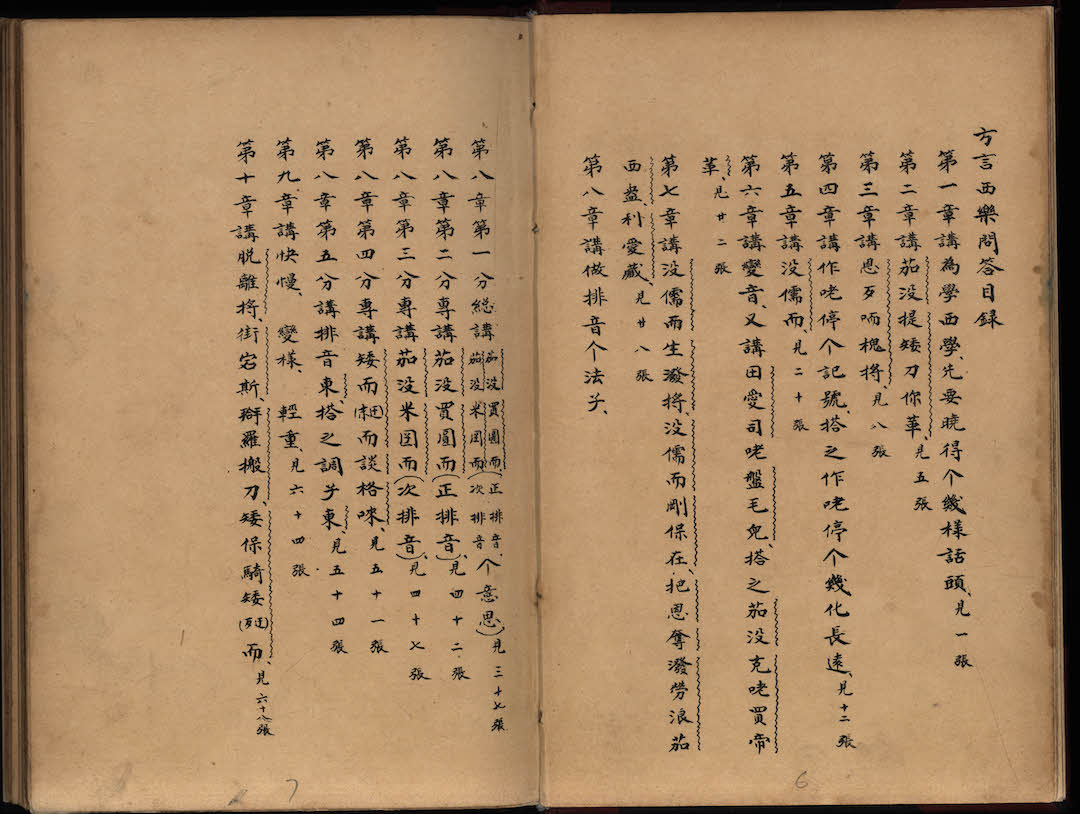 方言西樂問答目錄
第一章講為學西學、先要曉得个幾樣話頭、見一張
第二章講茄没提矮刀你華、見五張
第三章講恩歹唡槐將、見八張
第四章講作咾停个記號、搭之作咾停个幾化長遠、見十二張
第五章講没儒而、見二十張
第六章講變音、又講田愛司咾盤毛皃、搭之茄没克咾買帝
革、見廿二張
第七章講没儒而生潑將、没儒而剛保在、把恩奪潑勞浪茄
西盎利愛葳、見廿八張
第八章講做排音个法子、
第八章第一分総講茄没買圓而(正排音、茄没米囯而(次排音个意思)、見三十七張
第八章第二分專講茄没買圓而(正排音)、見四十二張
第八章第三分專講茄没米囯而(次排音)、見四十七張
第八章第四分專講矮而而談格唻、見五十一張
第八章第五分講排音東搭之調子東、見五十四張
第九章講快慢、變樣、輕重、見六十四張
第十章講脱離將、街宕斯、辩羅搬刀、矮保騎矮而、見六十八張
6
7